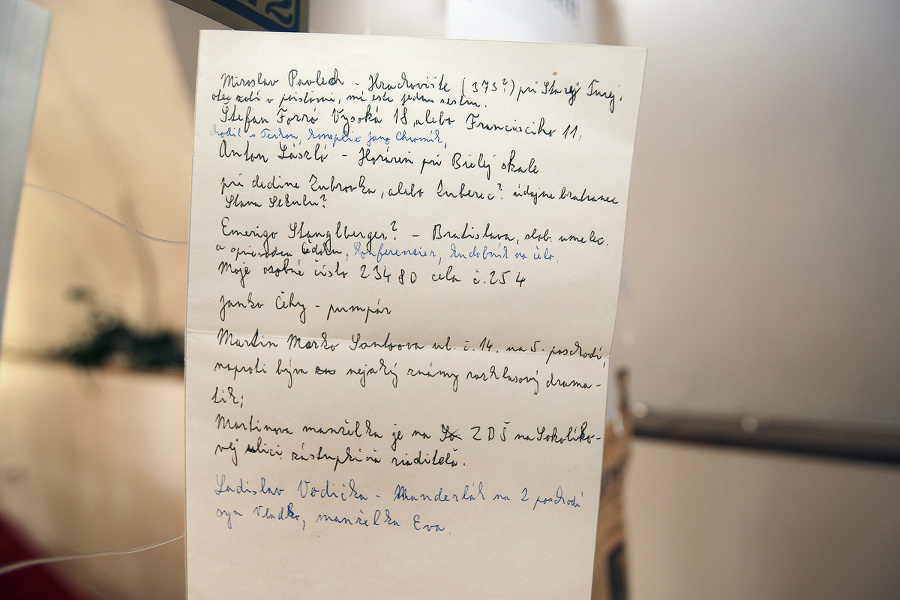 Miroslav Pavlech - Hrachovište (373?) pri Starej Turej,
otec robí v poisťovni, má ešte jednu sestru.
Štefan Forró Vysoká 18, alebo Francisciho 11,
chodil s Terkou, komplic Jano Chromík,
Anton László - Horáreň pri Bielej skale
pri dedine Zubrovka, alebo Zuberec? údajne bratranec
Slava Sekulu?
Emerigo Stanglberger? - Bratislava, slob. umelec.
a sprievodca Čedoku, konferencier, hudobník na čelo.
Moje osobné číslo 23480 cela č. 254
Janko Čéky - pumpár
Martin Marko Santova ul. č. 14. na 5. poschodí,
naproti býva nejaký známy rozhlasový drama-
tik;
Martinova manželka je na ZDŠ na Sokolíko-
vej ulici zástupkyňa riaditeľa.
Ladislav Vodička - Manderlák na 2 poschodí
syn Vladko, manželka Eva.